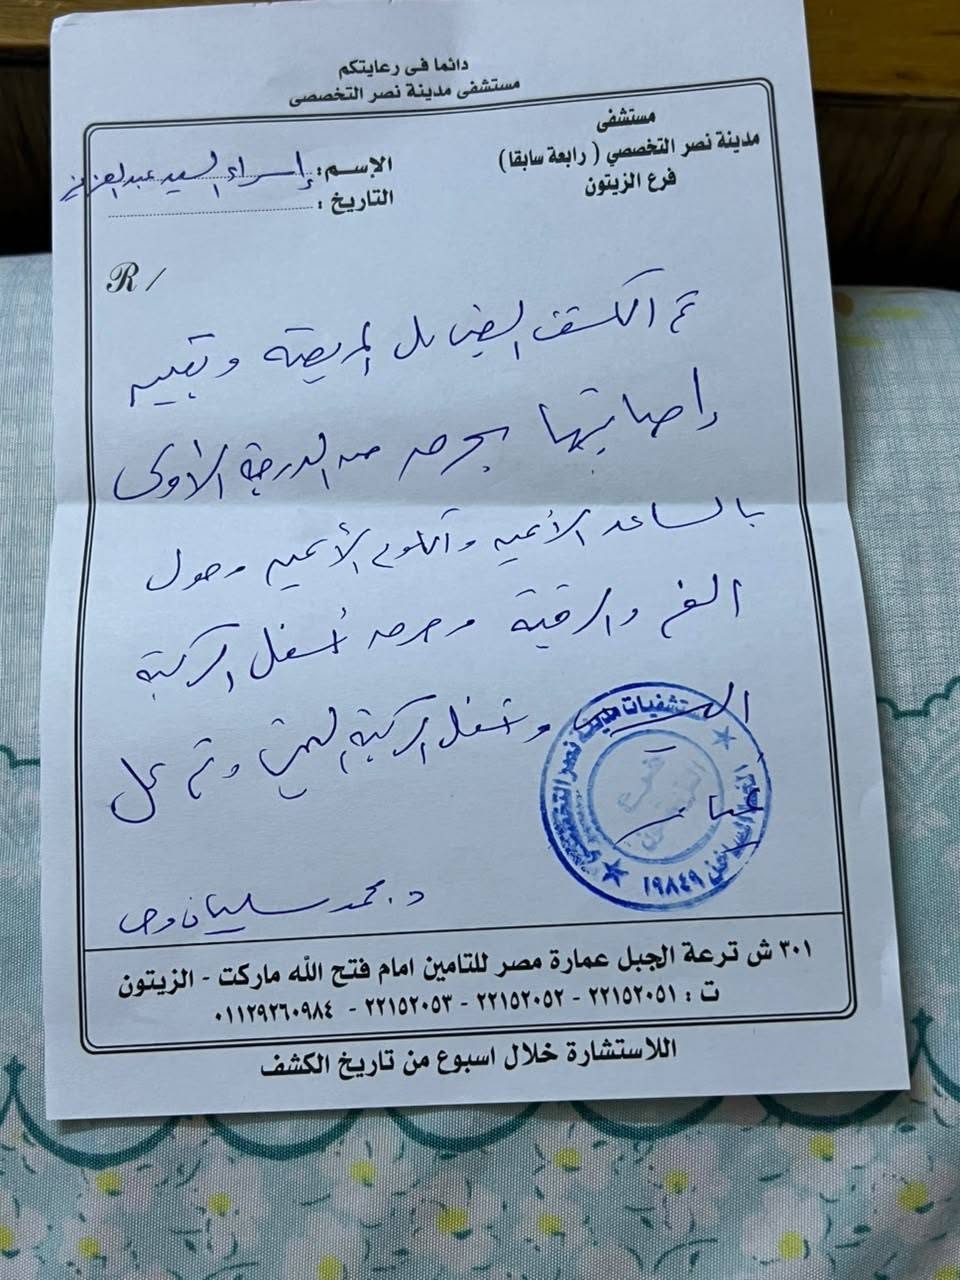 دائما فى رعايتكم
مستشفى مدينة نصر التخصصى
مستشفى
مدينة نصر التخصصي ( رابعة سابقا )
فرع الزيتون
الإسم : إسراء السيد عبد العزيز
التاريخ :
R /
تم الكشف على المريضة وتبين
إصابتها بحرق من الدرجة الأولى
بالساعد الأيمن والكوع الأيمن وحول
الفم والرقبة وحرق أسفل الركبة
وأسفل الركبة اليمنى وتم عمل
د. محمد سليمان
مستشفيات مدينة نصر التخصصي
١٩٨٤٩
٣٠١ ش ترعة الجبل عمارة مصر للتامين امام فتح الله ماركت - الزيتون
ت : ٢٢١٥٢٠٥١ - ٢٢١٥٢٠٥٢ - ٢٢١٥٢٠٥٣ - ٠١١٢٩٢٦٠٩٨٤
اللاستشارة خلال اسبوع من تاريخ الكشف